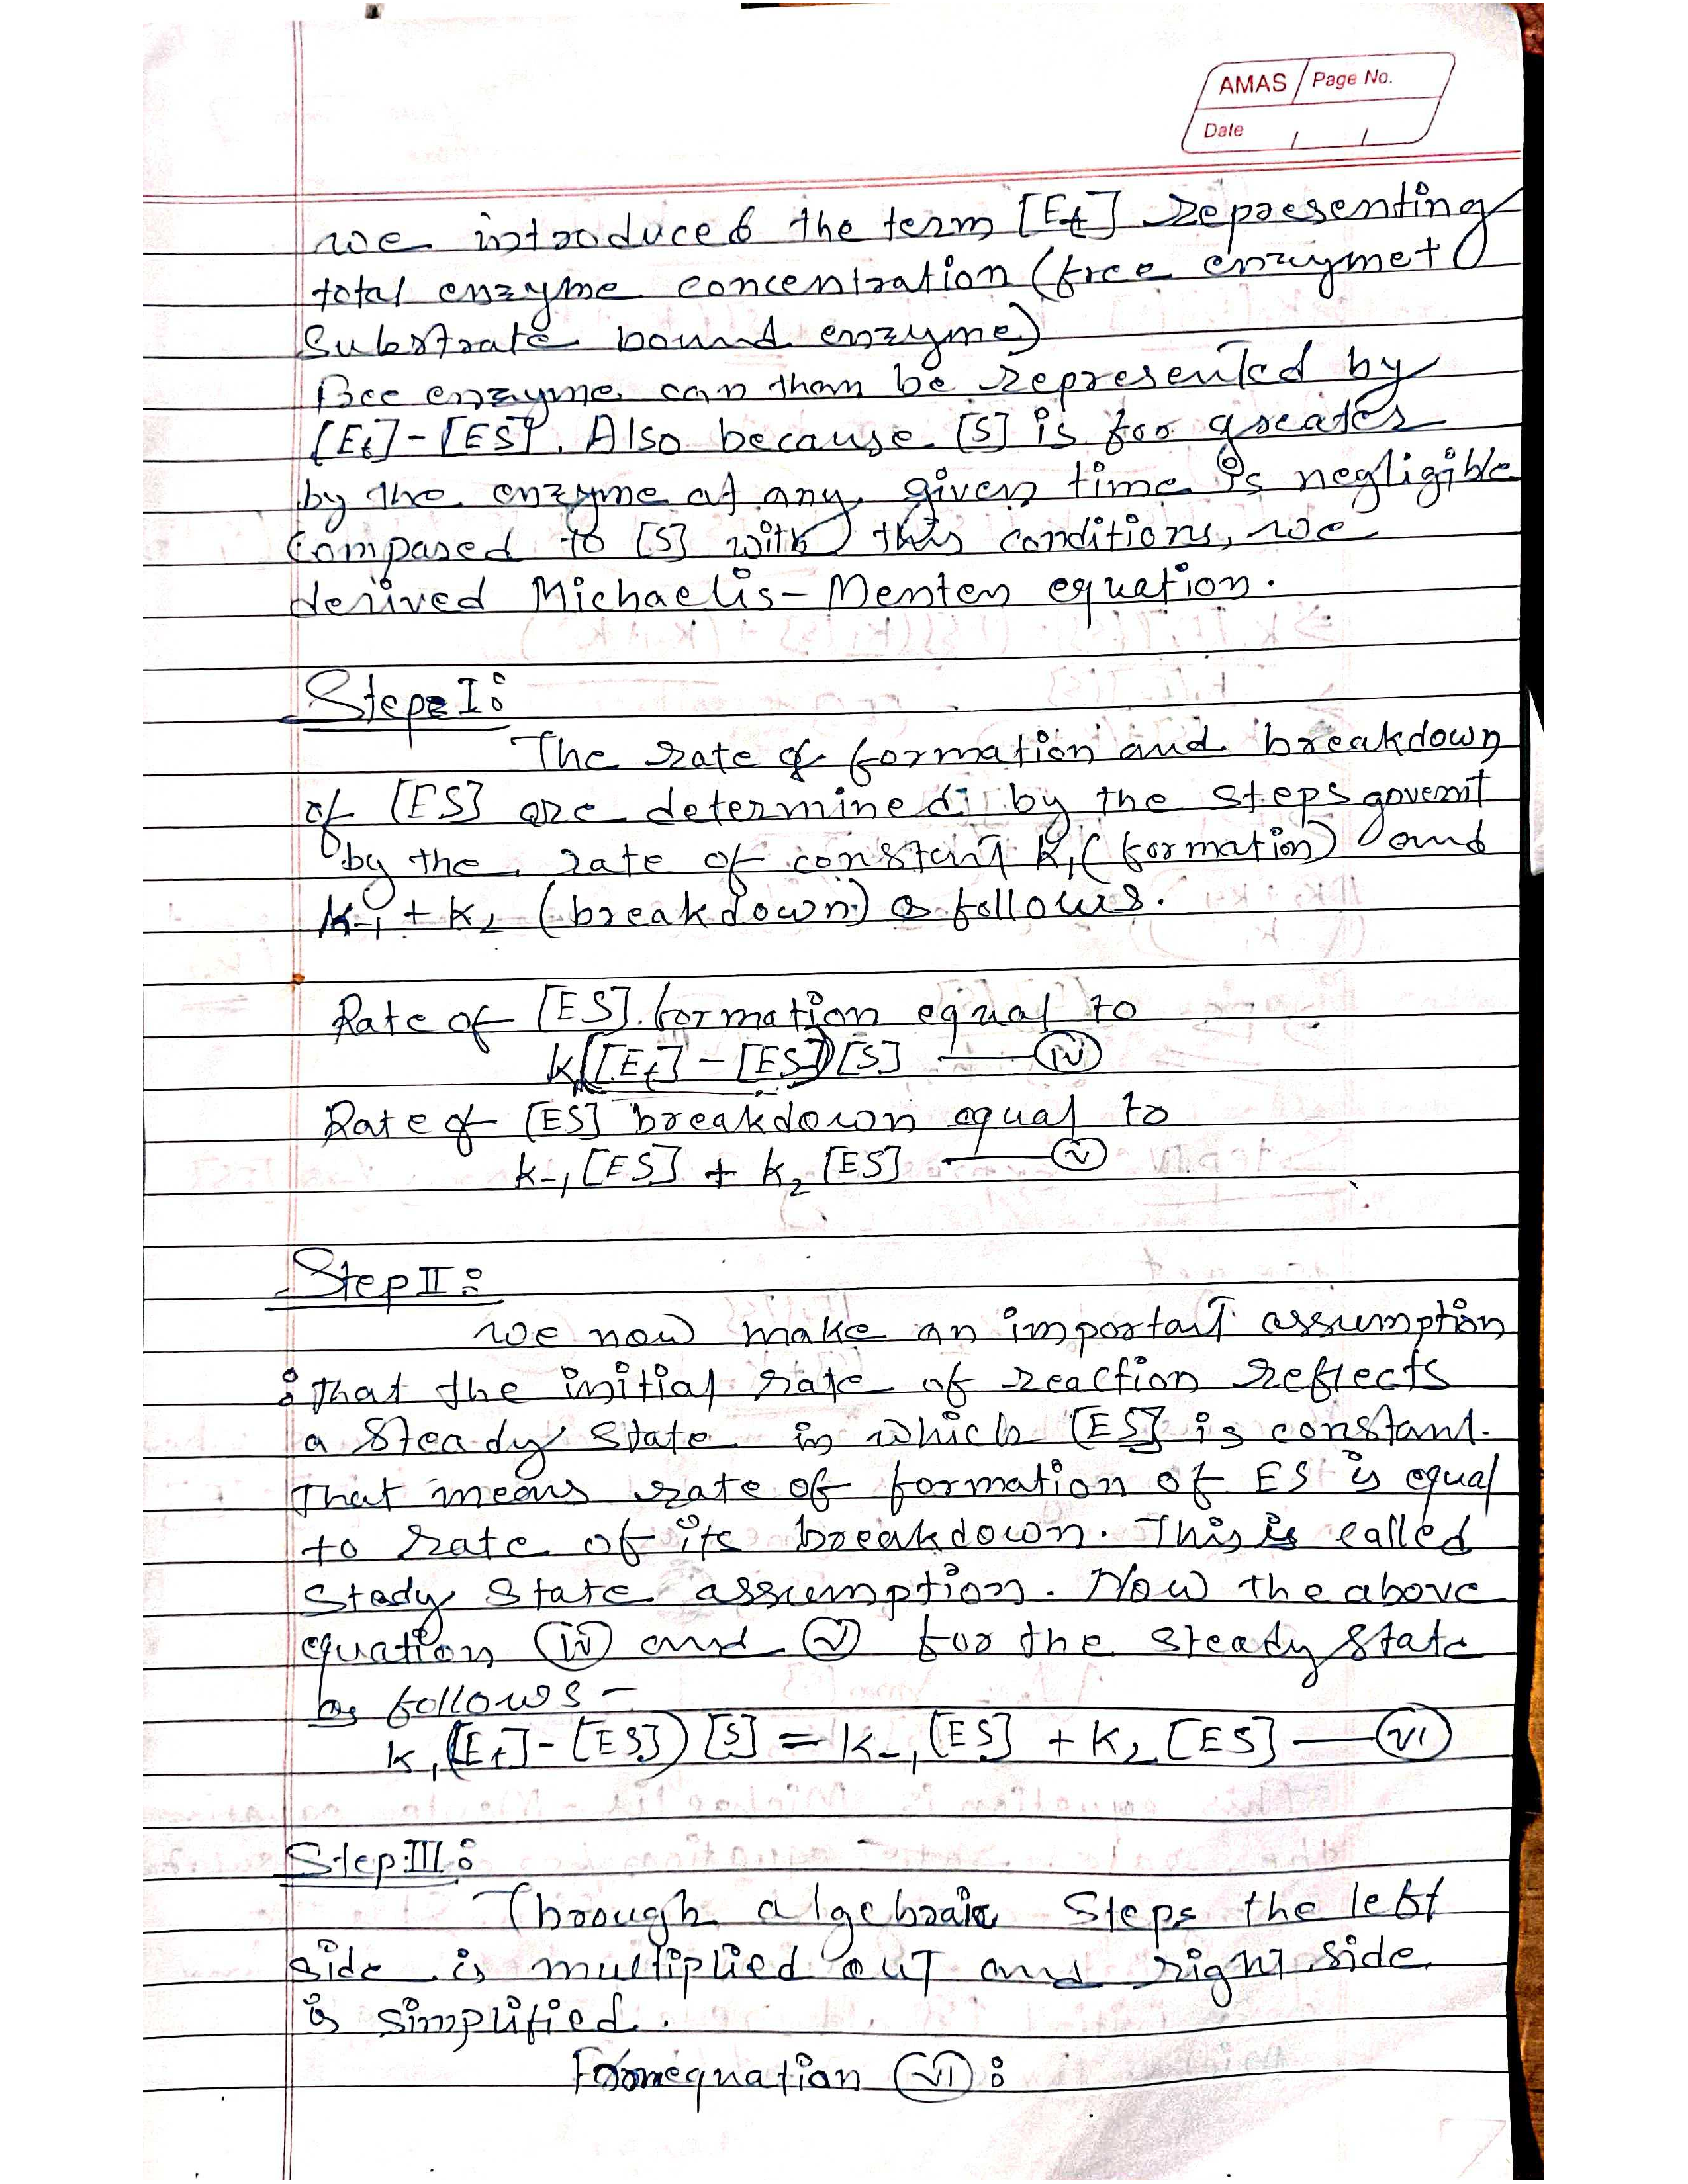 AMAS Page No.
Date / /
we introduced the term [Et] representing
total enzyme concentration (free enzyme +
Substrate bound enzyme)
Free enzyme can then be represented by
[Et] - [ES]. Also because [S] is far greater
by the enzyme at any given time is negligible
Compared to [S] with this conditions, we
derived Michaelis - Menten equation.
Step I:
The rate of formation and breakdown
of [ES] are determined by the steps
by the rate of constant K1 (formation) and
K-1 + K2 (breakdown) as follows.
Rate of [ES] formation equal to
K1([Et] - [ES])[S] — (iv)
Rate of [ES] breakdown equal to
k-1 [ES] + k2 [ES] — (v)
Step II:
we now make an important assumption
: that the initial rate of reaction reflects
a steady state in which [ES] is constant.
That means rate of formation of ES is equal
to rate of its breakdown. This is called
Stedy State assumption. Now the above
equation (iv) and (v) for the steady state
as follows -
k1([Et] - [ES])[S] = k-1 [ES] + K2 [ES] — (VI)
Step III:
Through algebraic Steps the left
side is multiplied out and right side
is simplified.
From equation (VI):